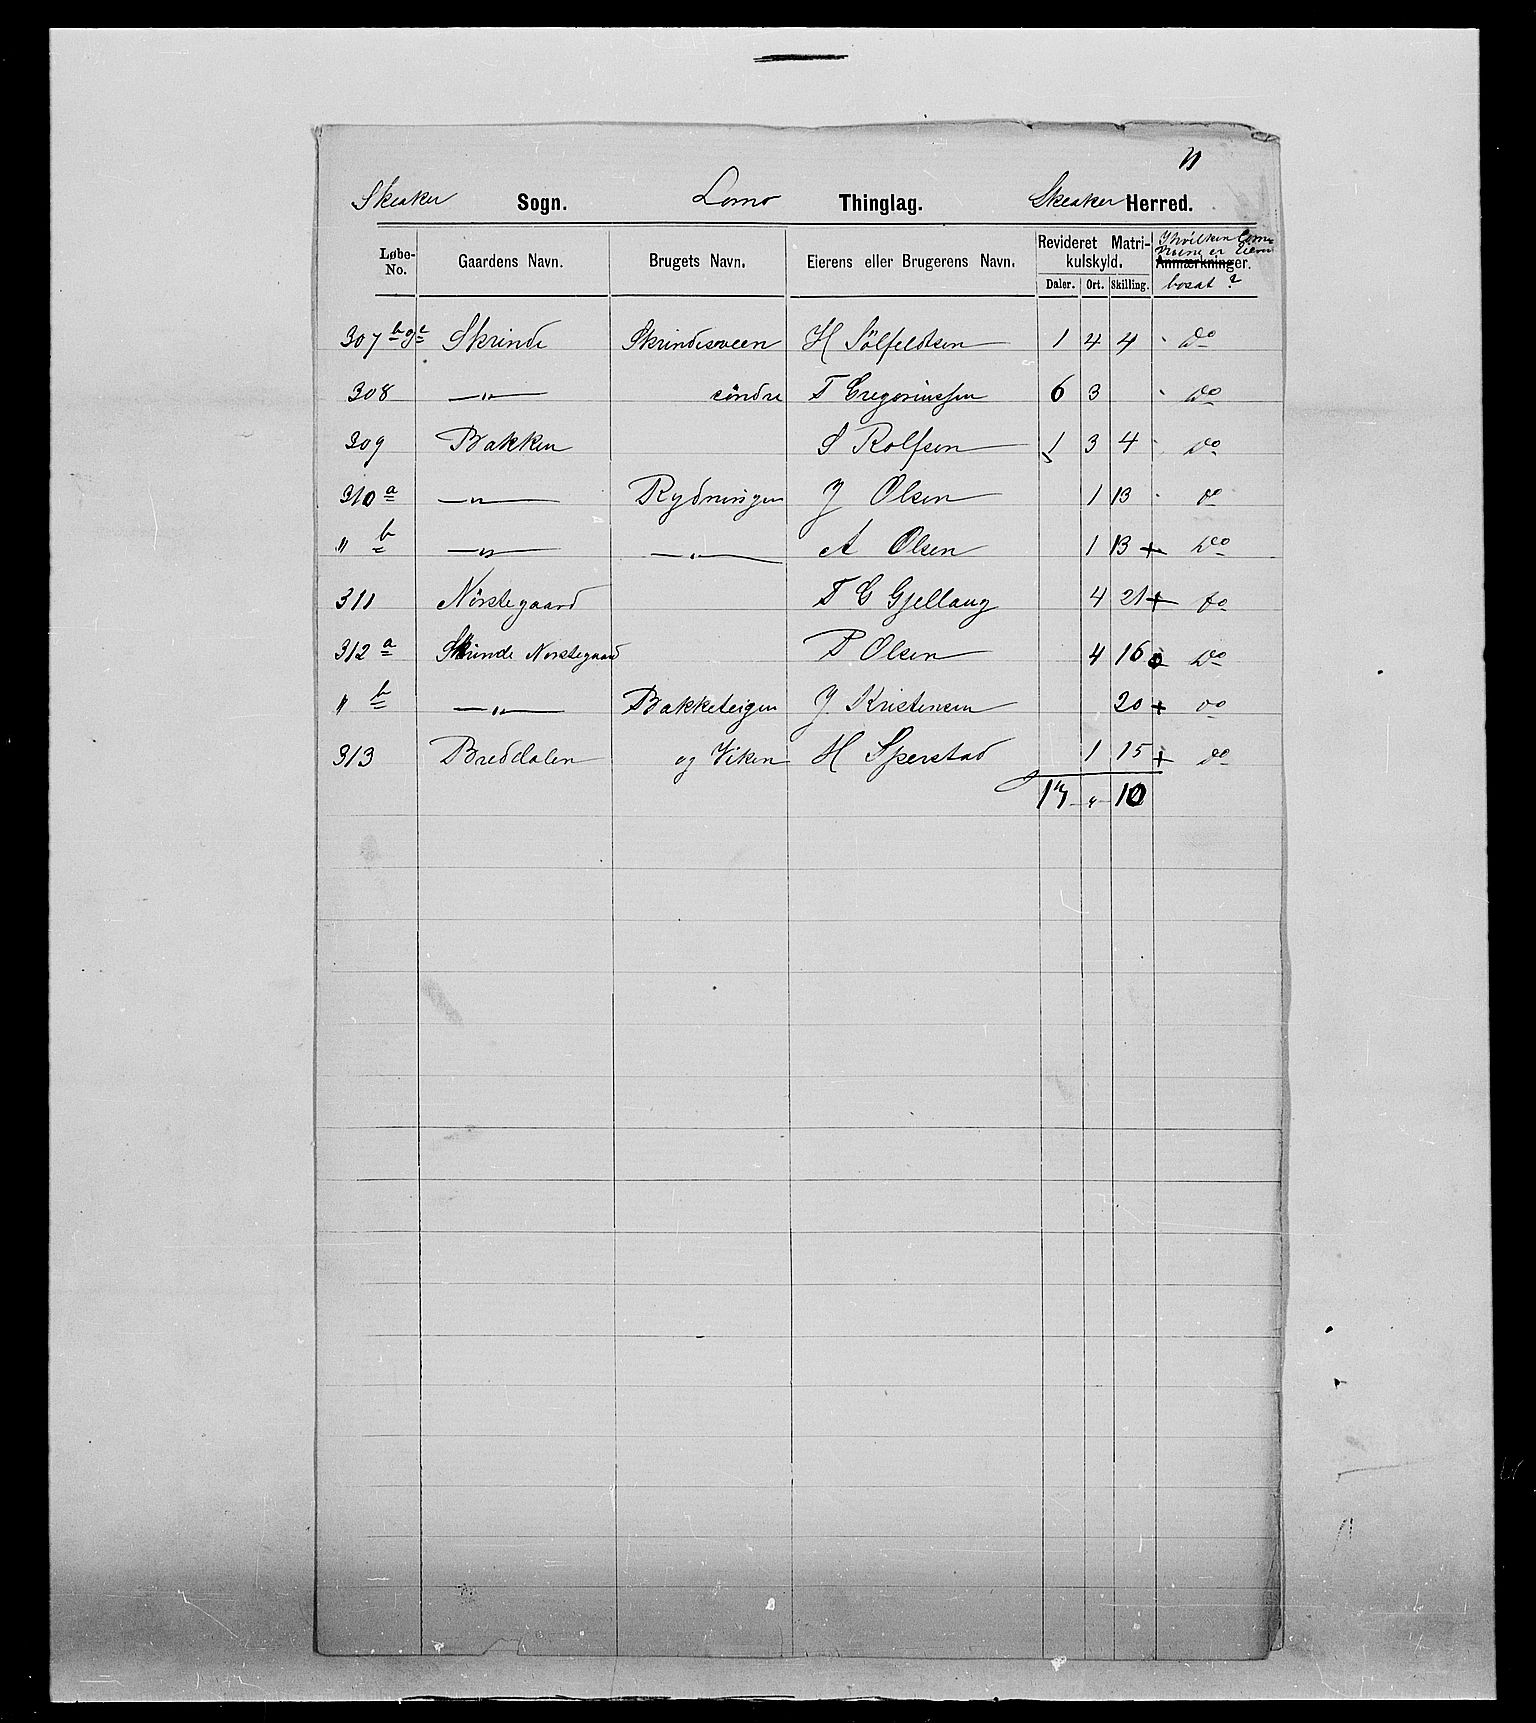 11
Skeaker Sogn. Loms Thinglag. Skeaker Herred.
Løbe-No. Gaardens Navn. Brugets Navn. Eierens eller Brugerens Navn. Revideret Matrikulskyld. Daler. Ort. Skilling. Anmærkninger. I hvilken Com- er Eieren bosat?
307 b Skrinde Skrindesveen H Sölfeldtsen 1 4 4 Do
308 —"— söndre T Gregoriussen 6 3 Do
309 Bakken S Rolfsen 1 3 4 Do
310 a —"— Rydningen J Olsen 1 13 Do
" b —"— —"— A Olsen 1 13 + Do
311 Nörstegaard T G Gjellaug 4 21 + Do
312 a Skrinde Norstegaard P Olsen 4 16 o Do
" b —"— Bakketeigen J Kristensen 20 + Do
313 Breddalen og Viken H Sperstad 1 15 + Do
17 " 10